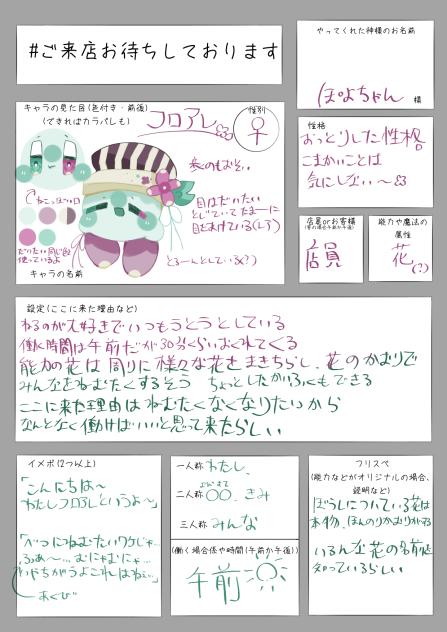 #ご来店お待ちしております
やってくれた神様のお名前
ぽよちゃん 様
キャラの見た目(色付き・前後)
(できればカラパレも)
フロアレ
性別
♀
目はだいたい
とじていてたまーに
目をあけている(レア)
だいたい同じ色
使っているよ
キャラの名前
性格
おっとりした性格
こまかいことは
気にしない〜
店員orお客様
店員
能力や魔法の
属性
花(?)
設定(ここに来た理由など)
ねるのが大好きでいつもうとうとしている
働く時間は午前だが30分くらいおくれてくる
能力の花は周りに様々な花をまきちらし、花のかおりで
みんなをねむたくするそう ちょっとしたかいふくもできる
ここに来た理由はねむたくなくなりたいから
なんとなく働けばいいと思って来たらしい
イメボ(2つ以上)
「こんにちは〜
わたしフロアレというよ〜」
「べつにねむたいワケじゃ…
ふぁ〜…むにゃむにゃ…
あくび
一人称 わたし、
二人称 〇〇、きみ
三人称 みんな
(働く場合係や時間(午前か午後))
午前
フリスペ
(能力などがオリジナルの場合、
説明など)
ぼうしについている花は
本物、ほんのりかおりがする
いろんな花の名前を
知っているらしい